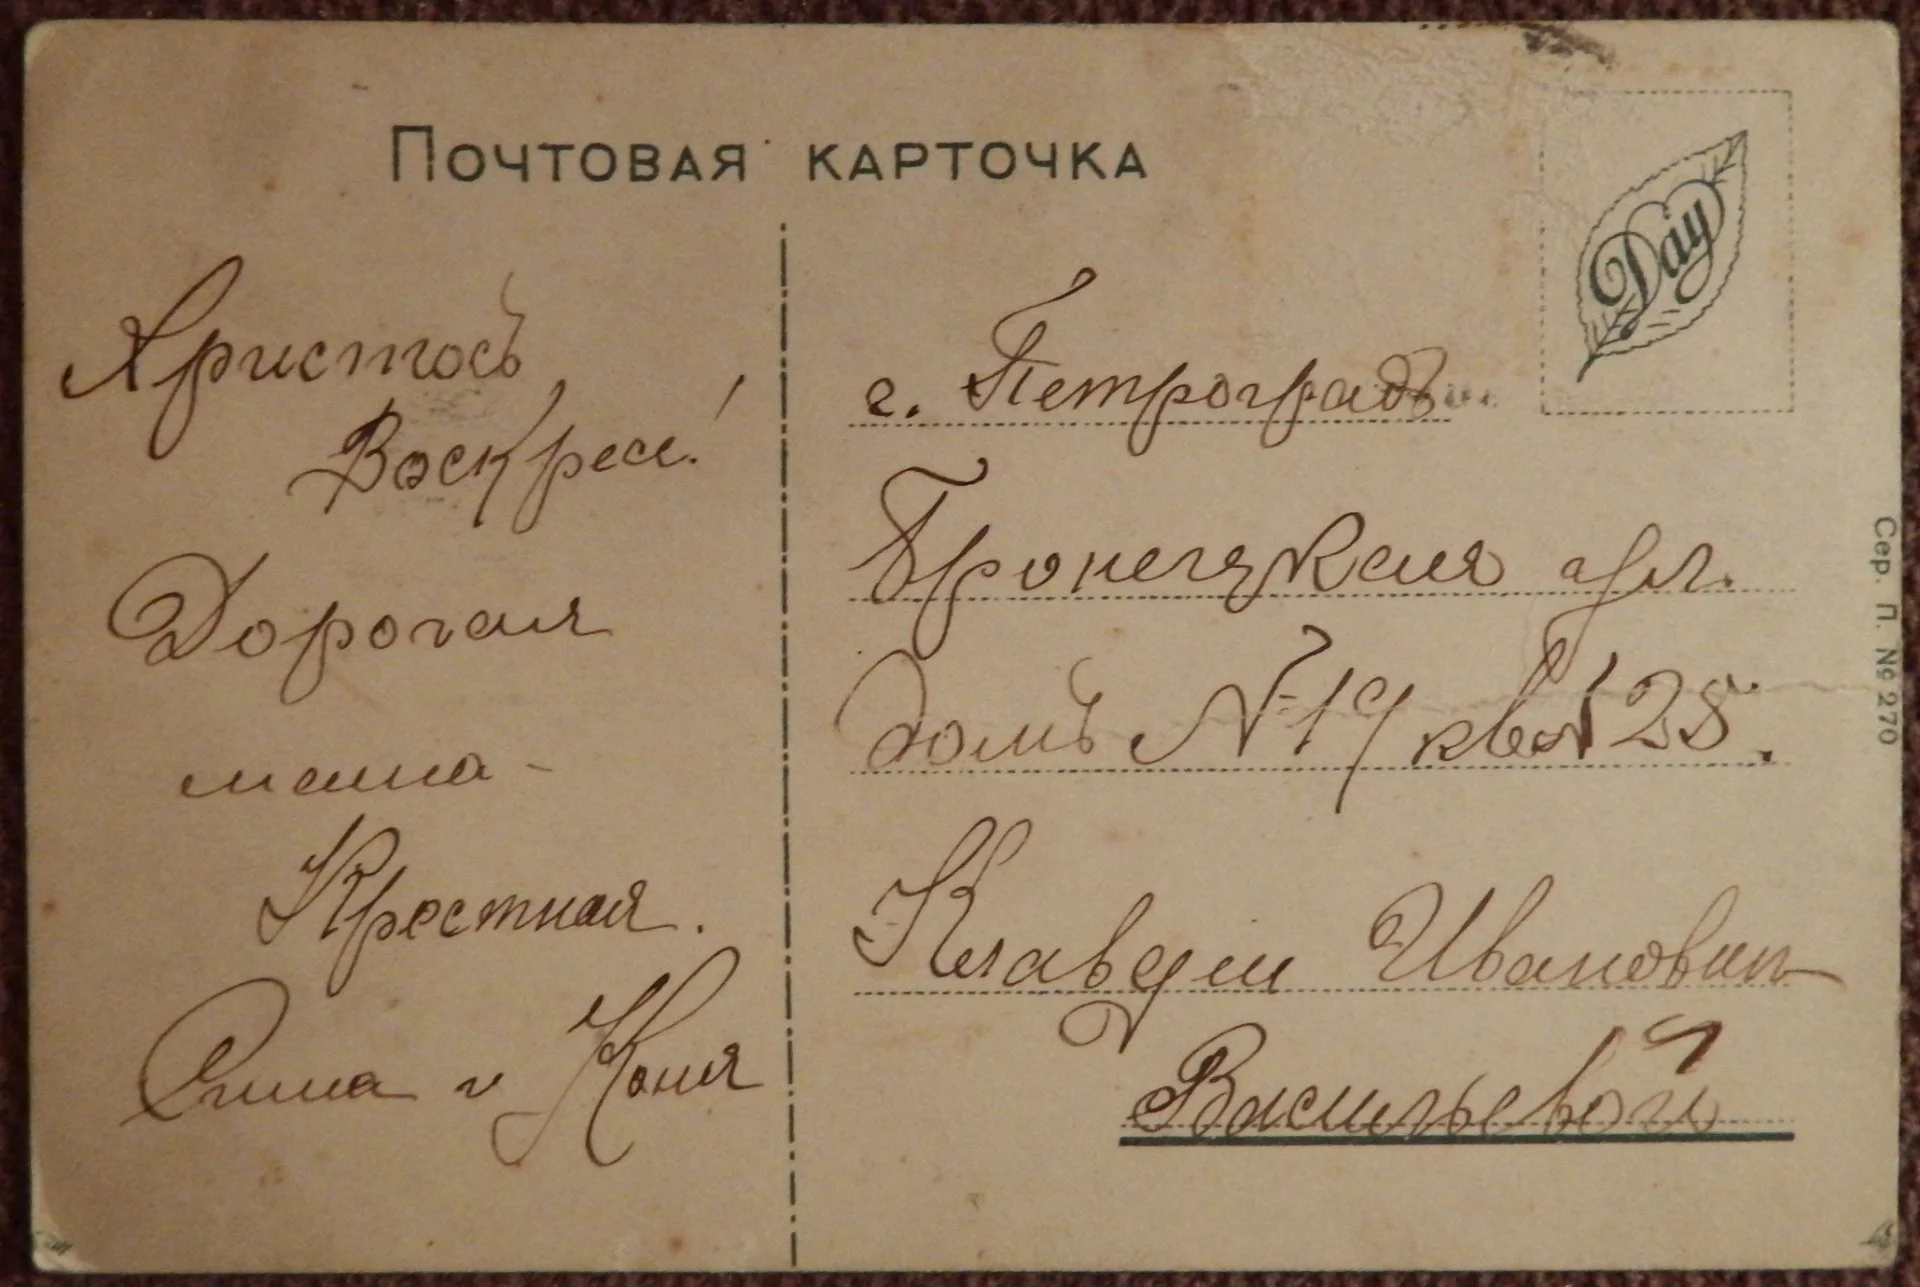 Почтовая карточка
Day
Христосъ
Воскресе!
Дорогая
мама-
Крестная.
Нина и Коня
г. Петроградъ
Бронецкая ул.
домъ № 19 кв № 28.
Клавдiи Ивановин
Васильевой
Сер. П. № 270